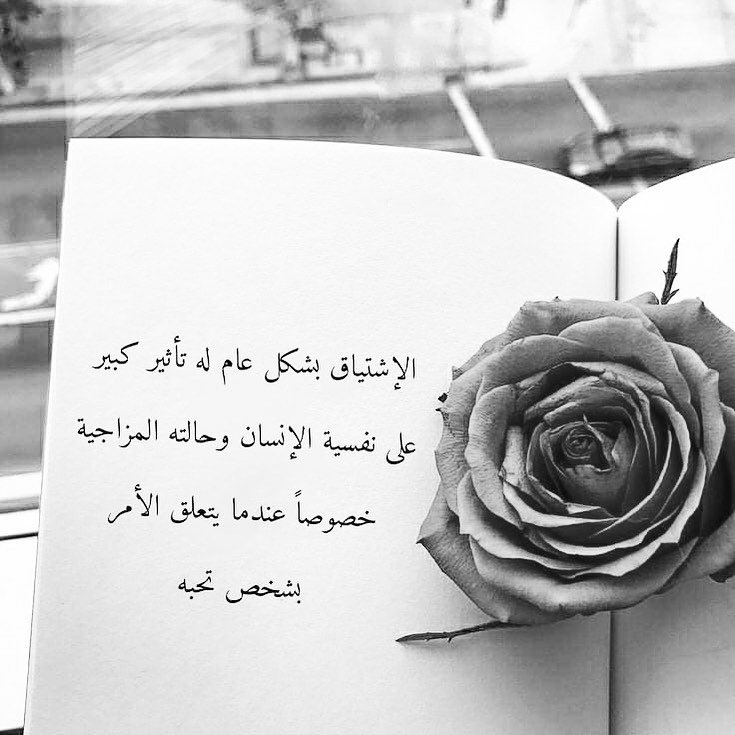 الإشتياق بشكل عام له تأثير كبير
على نفسية الإنسان وحالته المزاجية
خصوصاً عندما يتعلق الأمر
بشخص تحبه